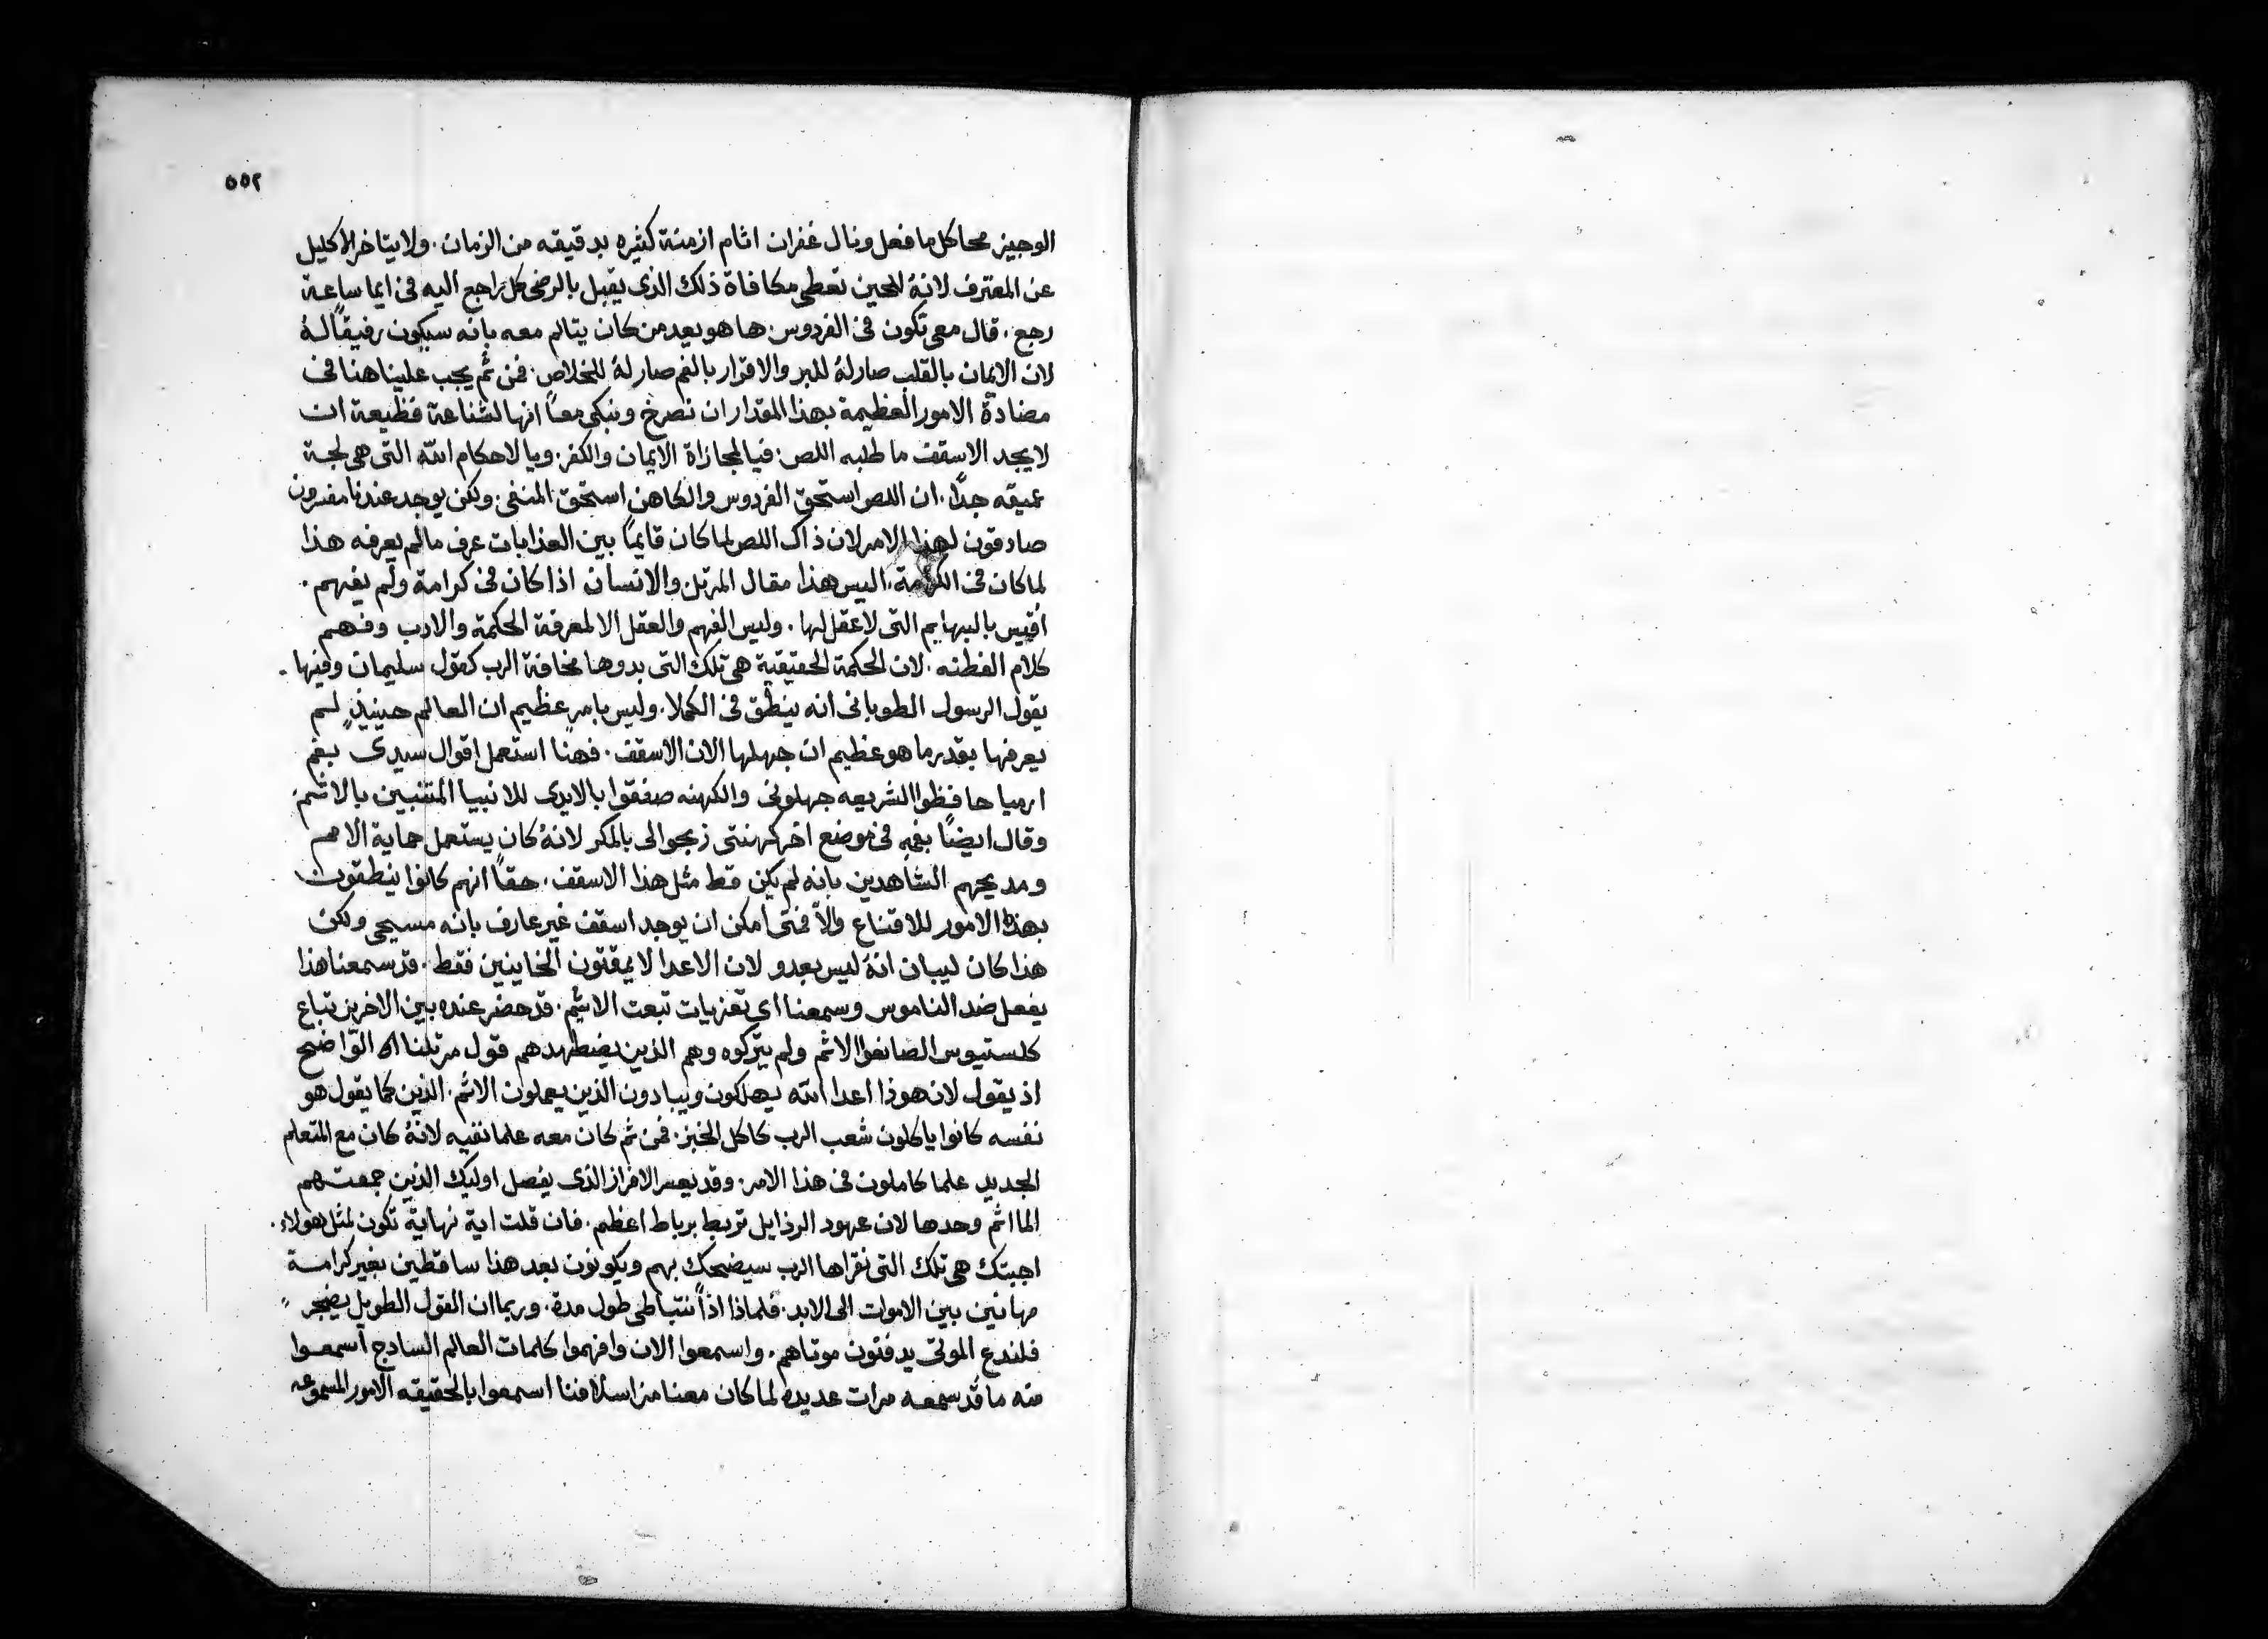 ٥٥٢
الوجيز محا كل ما فعل ونال غفران اثام ازمنة كثيره بدقيقه من الزمان. ولا يتاخر الاكليل
عن المعترف لانهُ للحين تعطى مكافاة ذلك الذى يقبل بالرضى كل راجع اليه فى ايما ساعة
رجع. قال معى تكون فى الفردوس. ها هو يعد من كان يتالم معه بانه سيكون رفيقًا لهُ
لان الايمان بالقلب صار لهُ للبر والاقرار بالفم صار لهُ للخلاص. فمن ثم يجب علينا هنا فى
مضادة الامور العظيمة بهذا المقدار ان نصرخ ونبكى معاً انها لشناعة فظيعة ان
لا يجد الاسقف ما طلبه اللص. فيا لمجازاة الايمان والكفر. ويا لاحكام الله التى هى لجة
عميقه جدًا. ان اللص استحق الفردوس والكاهن استحق المنفى. ولكن يوجد عندنا مفسرون
صادقون لهذا الامر لان ذاك اللص لما كان قايمًا بين العذابات عرف ما لم يعرفه هذا
لما كان فى الكرامة. اليس هذا مقال المرتل والانسان اذا كان فى كرامة ولم يفهم.
أقيس بالبهايم التى لا عقل لها. وليس الفهم والعقل الا لمعرفة الحكمة والادب وفهم
كلام الفطنه. لان الحكمة الحقيقية هى تلك التى بدوها مخافة الرب كقول سليمان وفيها.
يقول الرسول الطوبانى انه ينطق فى الكملا. وليس بامرٍ عظيم ان العالم حينيذٍ لم
يعرفها بقدر ما هو عظيم ان جهلها الان الاسقف. فهنا استعمل اقوال سيدى بفم
ارميا حافظوا الشريعه جهلونى والكهنه صفقوا بالايدى للانبيا المتنبيين بالاثم.
وقال ايضًا بفمهِ فى موضع اخر كهنتى زبجوا لى بالمكر لانهُ كان يستعمل حماية الامم
ومديحهم الشاهدين بانه لم يكن قط مثل هذا الاسقف. حقاً انهم كانوا ينطقون
بهذا الامور للاقناع والاّ فمتى امكن ان يوجد اسقف غير عارف بانه مسيحى ولكن
هذا كان ليبان انهُ ليس بعدو لان الاعدا لا يمقتون الخاينين فقط. قد سمعنا هذا
يفعل ضد الناموس وسمعنا اى تعزيات تبعت الاثيم. قد حضر عنده بين الاخرين تباع
كلستيوس الصانعوا الاثم ولم يتركوه وهم الذين يضطهدهم قول مرتلنا الواضح
اذ يقول لان هوذا اعدا الله يهلكون ويبادون الذين يعملون الاثم. الذين كما يقول هو
نفسه كانوا ياكلون شعب الرب كاكل الخبز. فمن ثم كان معه علما نفيه لانهُ كان مع المتعلم
الجديد علما كاملون فى هذا الامر. وقد يعسر الافراز الذى يفصل اوليك الذين جمعتهم
الماثم وحدها لان عهود الرذايل تربط برباط اعظم. فان قلت اية نهاية تكون لمثل هولاء.
اجبتك هى تلك التى نقراها الرب سيضحك بهم ويكونون بعد هذا ساقطين بغير كرامة
مهانين بين الاموات الى الابد. فلماذا اذاً نتباطى طول مدة. وربما ان القول الطويل يضجر
فلندع الموتى يدفنون موتاهم. واسمعوا الان وافهموا كلمات العالم السادج اسمعوا
منه ما قد سمعه مرات عديده لما كان معنا من اسلافنا اسمعوا بالحقيقه الامور المسموعه